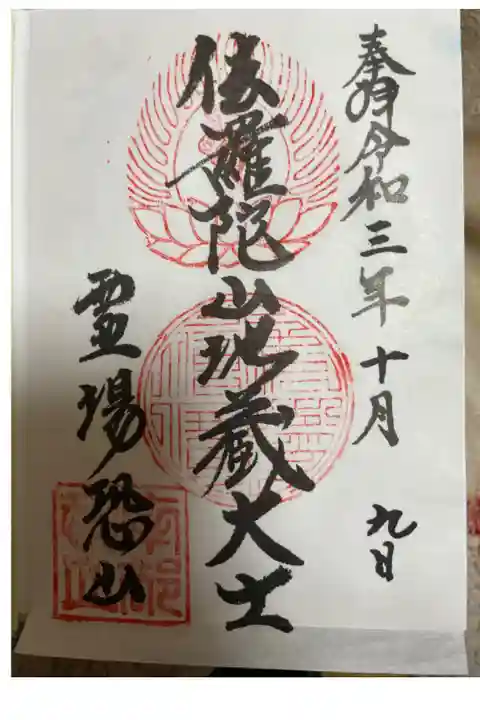 奉拝 令和三年十月 九日
伽羅陀山地蔵大士
霊場恐山